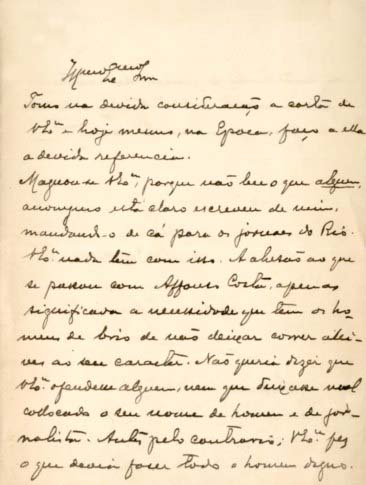 Tomo na devida consideração a carta de
V.Sa. e hoje mesmo, na Epoca, faço a ella
a devida referencia.
Magoou-se V.Sa., porque não leu o que alguem,
anonymo está claro escreveu de mim,
mandando-o de cá para os jornaes do Rio.
V.Sa. nada tem com isso. A allusão ao que
se passou com Affonso Costa, apenas
significada a necessidade que tem os ho-
mens de brio de não deixar correr alei-
ves ao seu caracter. Não queria dizer que
V.Sa. offendesse alguem, nem que deixasse mal
collocado o seu nome de homem e de jor-
nalista. Antes pelo contrario; V.Sa. fez
o que devia fazer todo o homem digno.